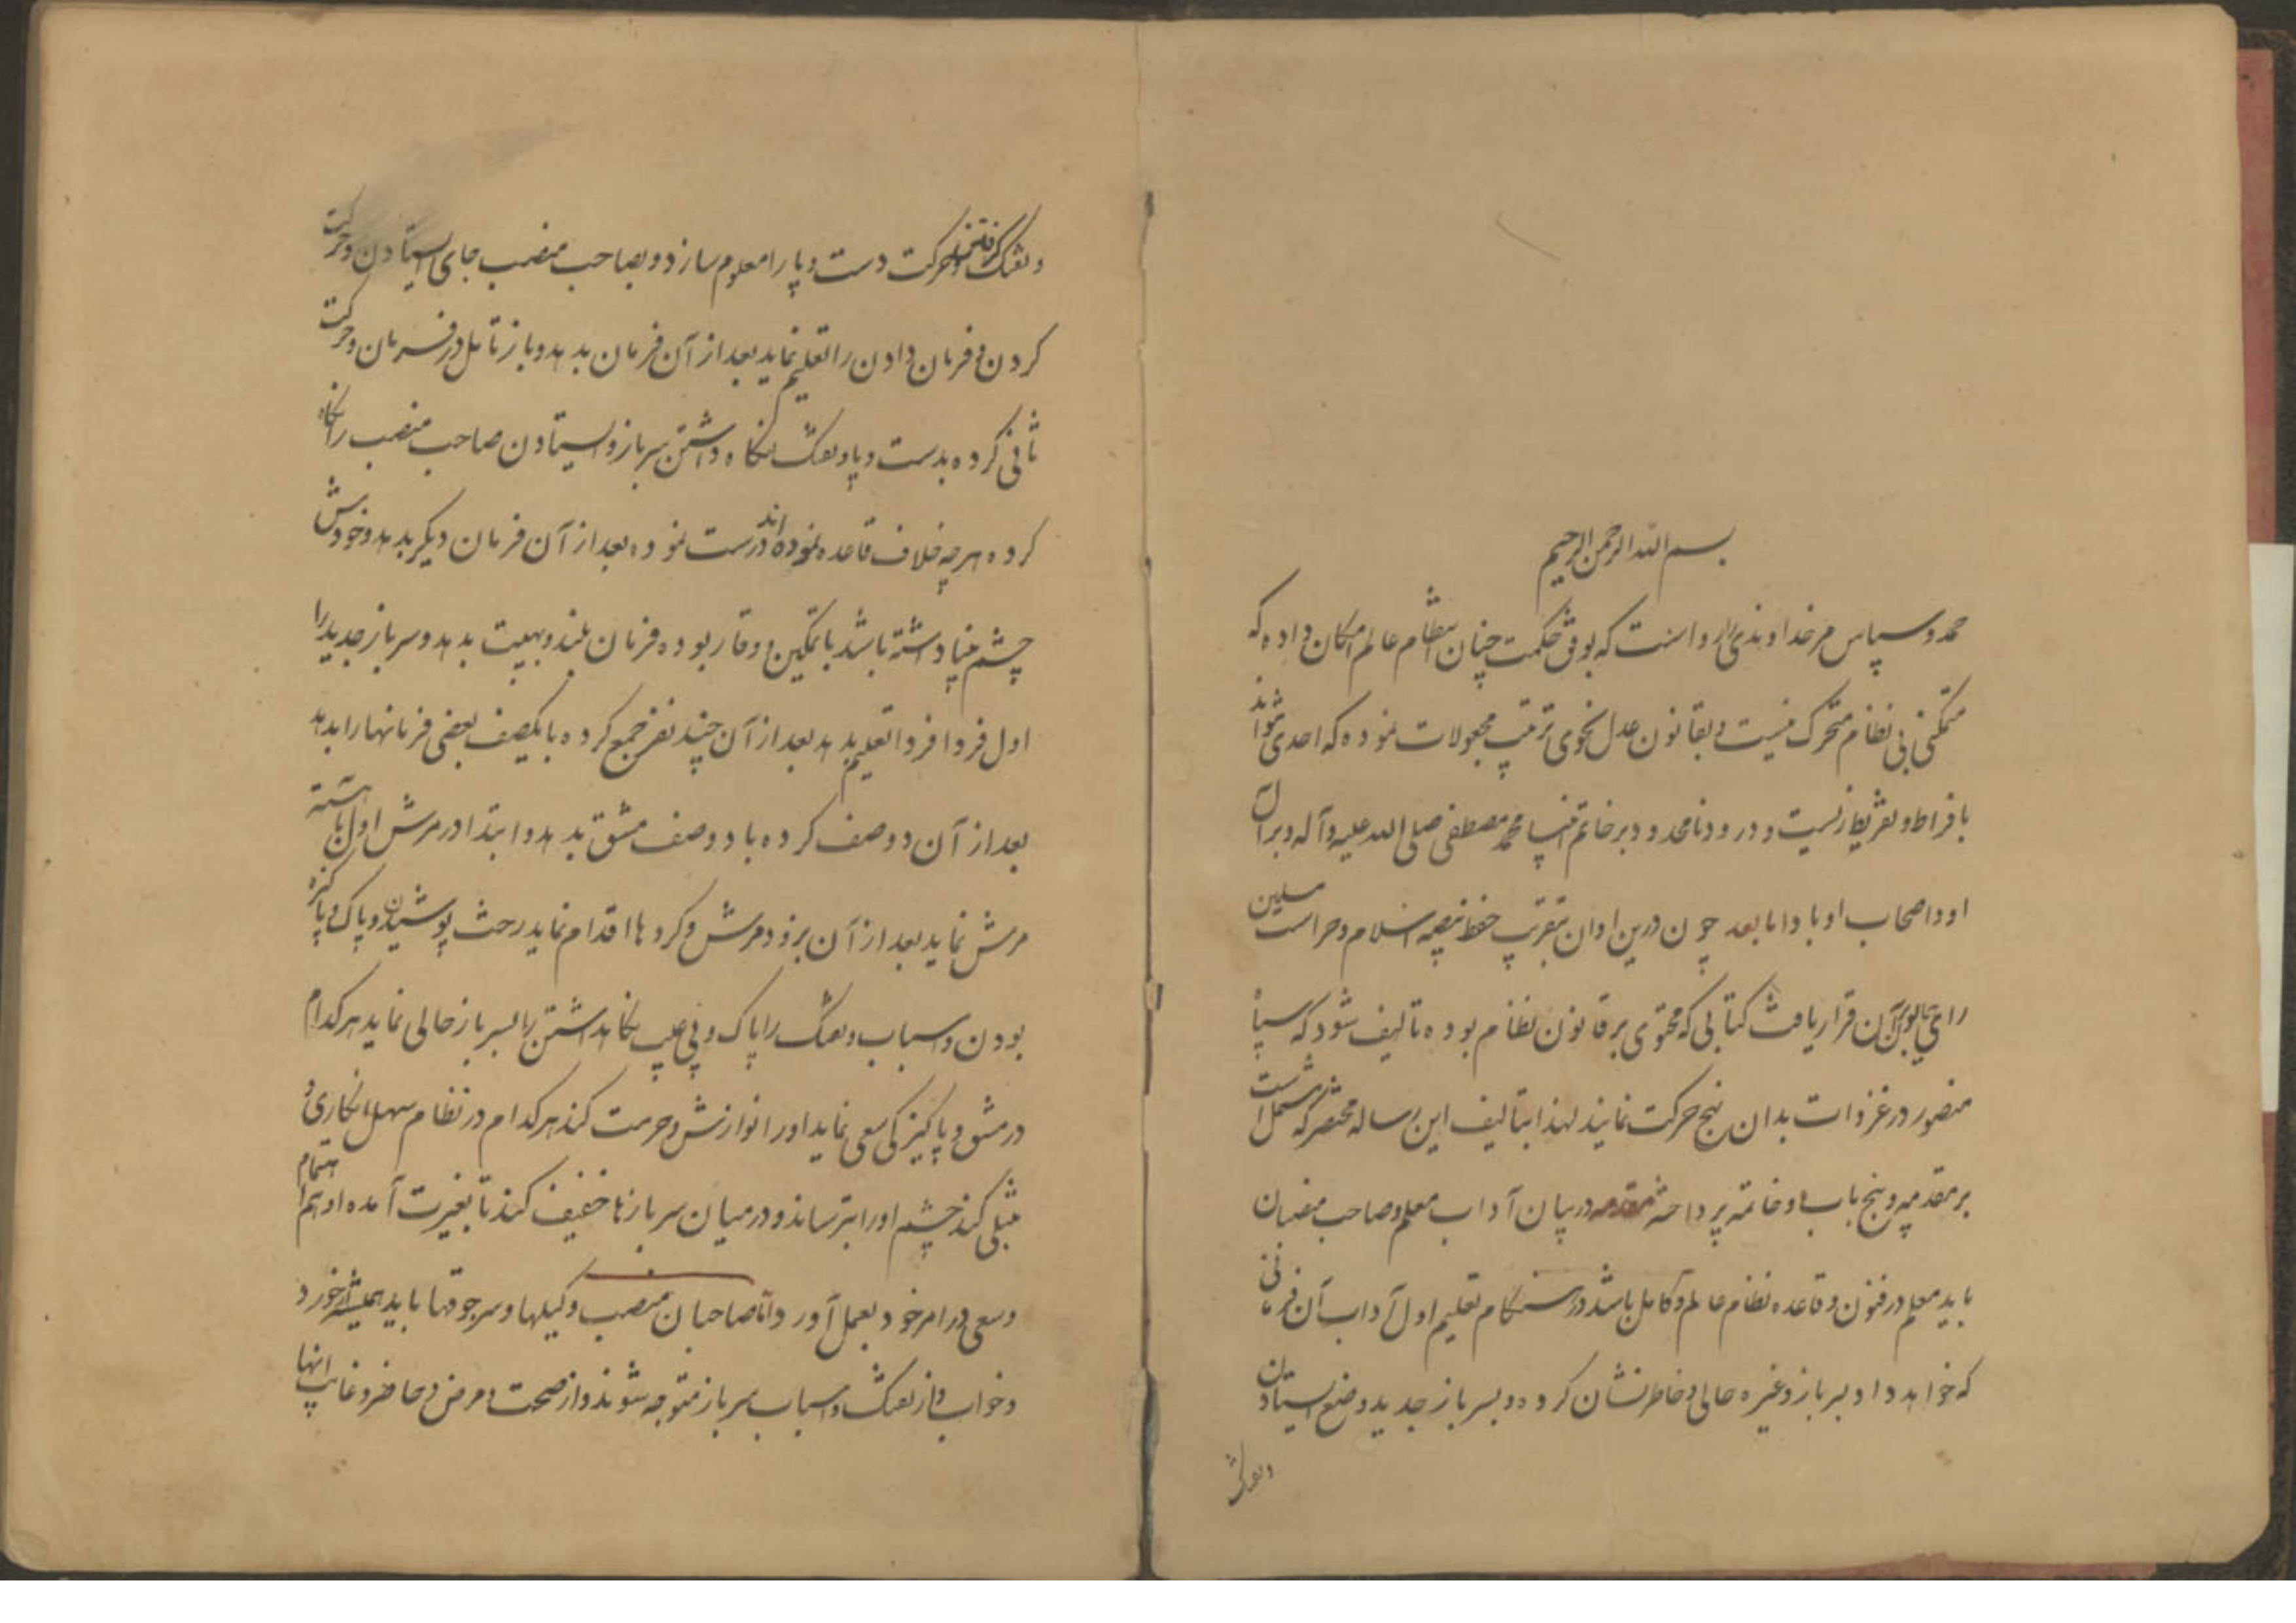 بسم الله الرحمن الرحیم
حمد و سپاس مر خداوندی را رواست که بوفق حکمت چنان انتظام عالم امکان داده که
متمکنی بی نظام متحرک نیست و بقانون عدل بنحوی ترتیب مجعولات نموده که احدی نتواند
بافراط و تفریط زیست و درود نامحدود بر خاتم انبیا محمد مصطفی صلی الله علیه و آله و بر آل
او و اصحاب او باد و اما بعد چون درین اوان بتقریب حفظ بیضه اسلام و حراست مسلمین
رای همایون بر آن قرار یافت کتابی که محتوی بر قانون نظام بوده تالیف شود که سپاه
منصور در غزوات بدان نهج حرکت نمایند لهذا بتالیف این رساله مختصر که مشتمل است
بر مقدمه و پنج باب و خاتمه پرداخته مقدمه در بیان آداب معلم و صاحب منصبان
باید معلم در فنون و قاعده نظام عالم و کامل باشد و در هنگام تعلیم اول آداب آن فرمانی
که خواهد داد بسرباز و غیره حالی و خاطرنشان کرده و بسرباز جدید وضع ایستادن
و تفنگ
و تفنگ گرفتن و حرکت دست و پا را معلوم سازد و بصاحب منصب جای ایستادن و حرکت
کردن و فرمان دادن را تعلیم نماید بعد از آن فرمان بدهد و باز تامل در فرمان و حرکت
ثانی کرده بدست و پا و تفنگ نگاه داشتن سرباز و ایستادن صاحب منصب را نگاه
کرده هرچه خلاف قاعده نموده اند درست نموده بعد از آن فرمان دیگر بدهد و خودش
چشم بینا داشته باشد با تمکین و وقار بوده فرمان بلند و بهیبت بدهد و سرباز جدید را
اول فردا فردا تعلیم بدهد بعد از آن چند نفر جمع کرده با یکصف بعضی فرمانها را بدهد
بعد از آن دو صف کرده با دو صف مشق بدهد و ابتدا در مرش اول باهسته
مرش نماید بعد از آن بزود مرش و کردها اقدام نماید رخت پوشیدن و پاک و پاکیزه
بودن و اسباب و تفنگ را پاک و بی عیب نگاهداشتن را بسرباز حالی نماید هر کدام
در مشق و پاکیزگی سعی نماید او را نوازش و حرمت کند هر کدام در نظام سهل انگاری و
تنبلی کند چشم او را بترساند و در میان سربازها خفیف کند تا بغیرت آمده او هم اهتمام
و سعی در امر خود بعمل آورد و اما صاحبان منصب وکیلها و سرجوقها باید همیشه از خورد
و خواب و از تفنگ و اسباب سرباز متوجه شوند و از صحت و مرض و حاضر و غایب آنها